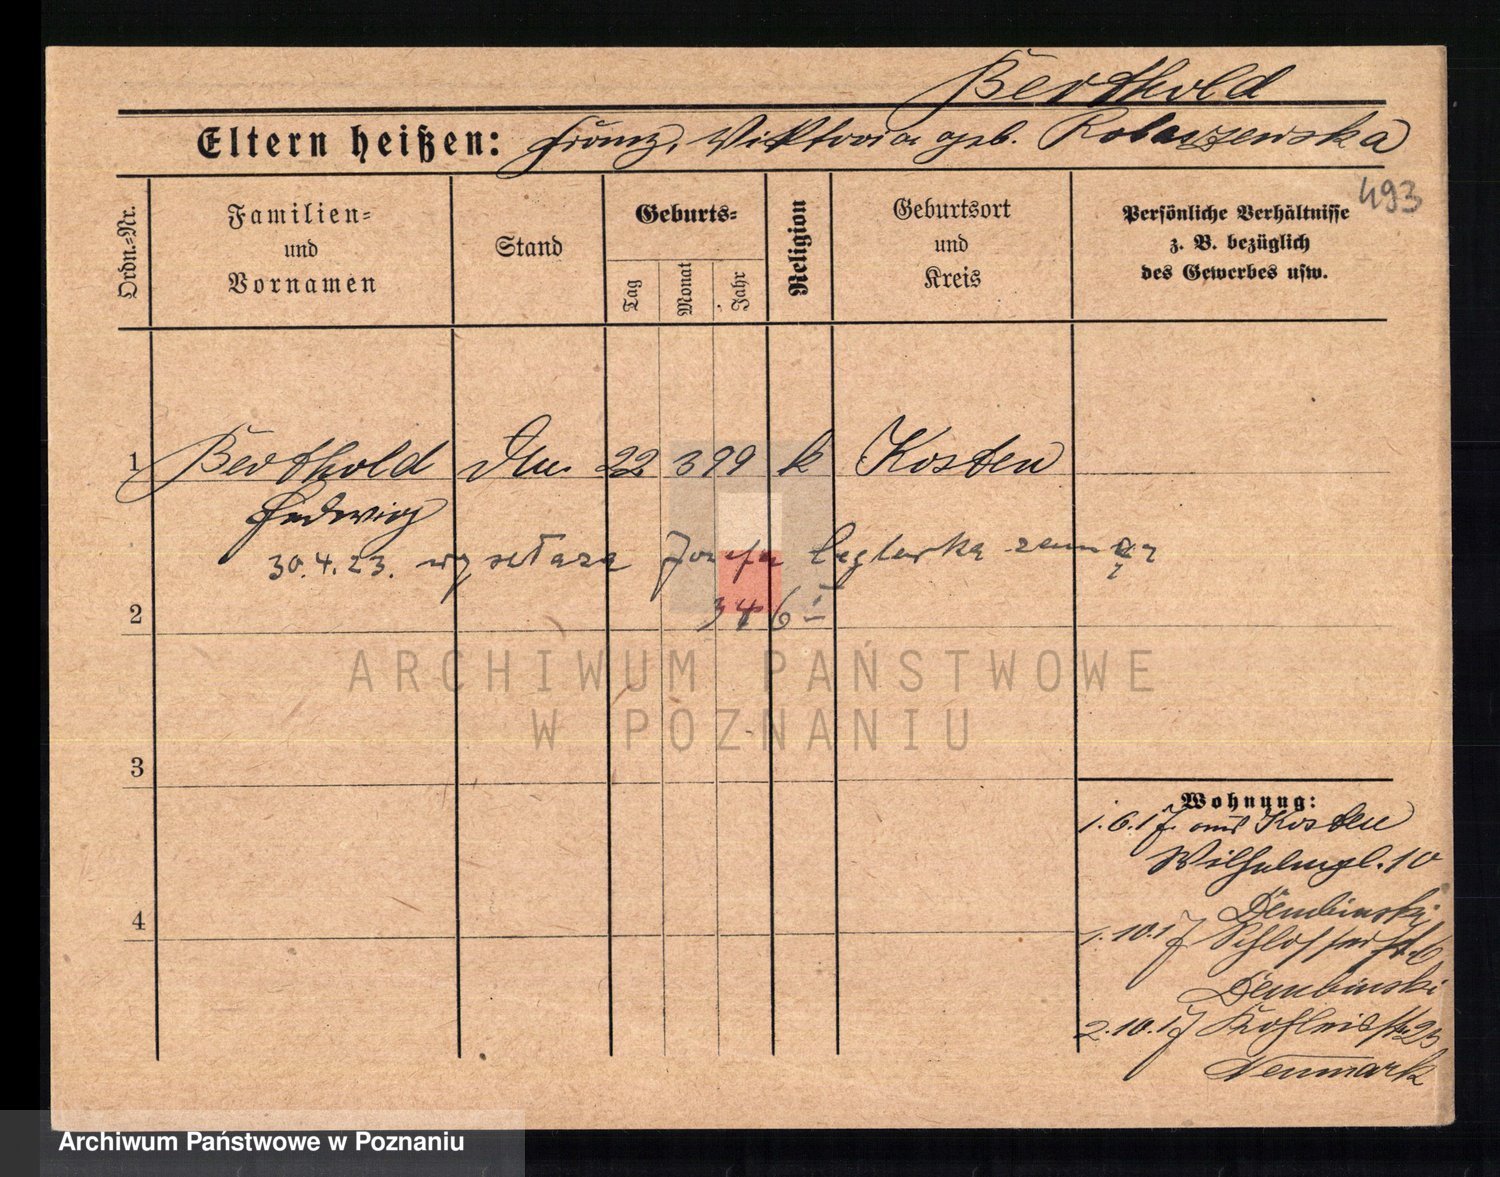 Berthold
Eltern heißen: Franz, Viktoria geb. Robaszewska
493
Ordn.=Nr.
Familien=
und
Vornamen
Stand
Geburts=
Tag
Monat
Jahr
Religion
Geburtsort
und
Kreis
Persönliche Verhältnisse
z. B. bezüglich
des Gewerbes usw.
1 Berthold 22 3 99 k Kosten
Hedwig
30.4.23. wyszła za Józefa
346 I
2
ARCHIWUM PAŃSTWOWE
W POZNANIU
3
Wohnung:
1.6.17. aus Kosten
Wilhelmpl. 10
Dembinski
4
1.10.17 Schlosserstr. 6
Dembinski
2.10.17 25
Neumark
Archiwum Państwowe w Poznaniu